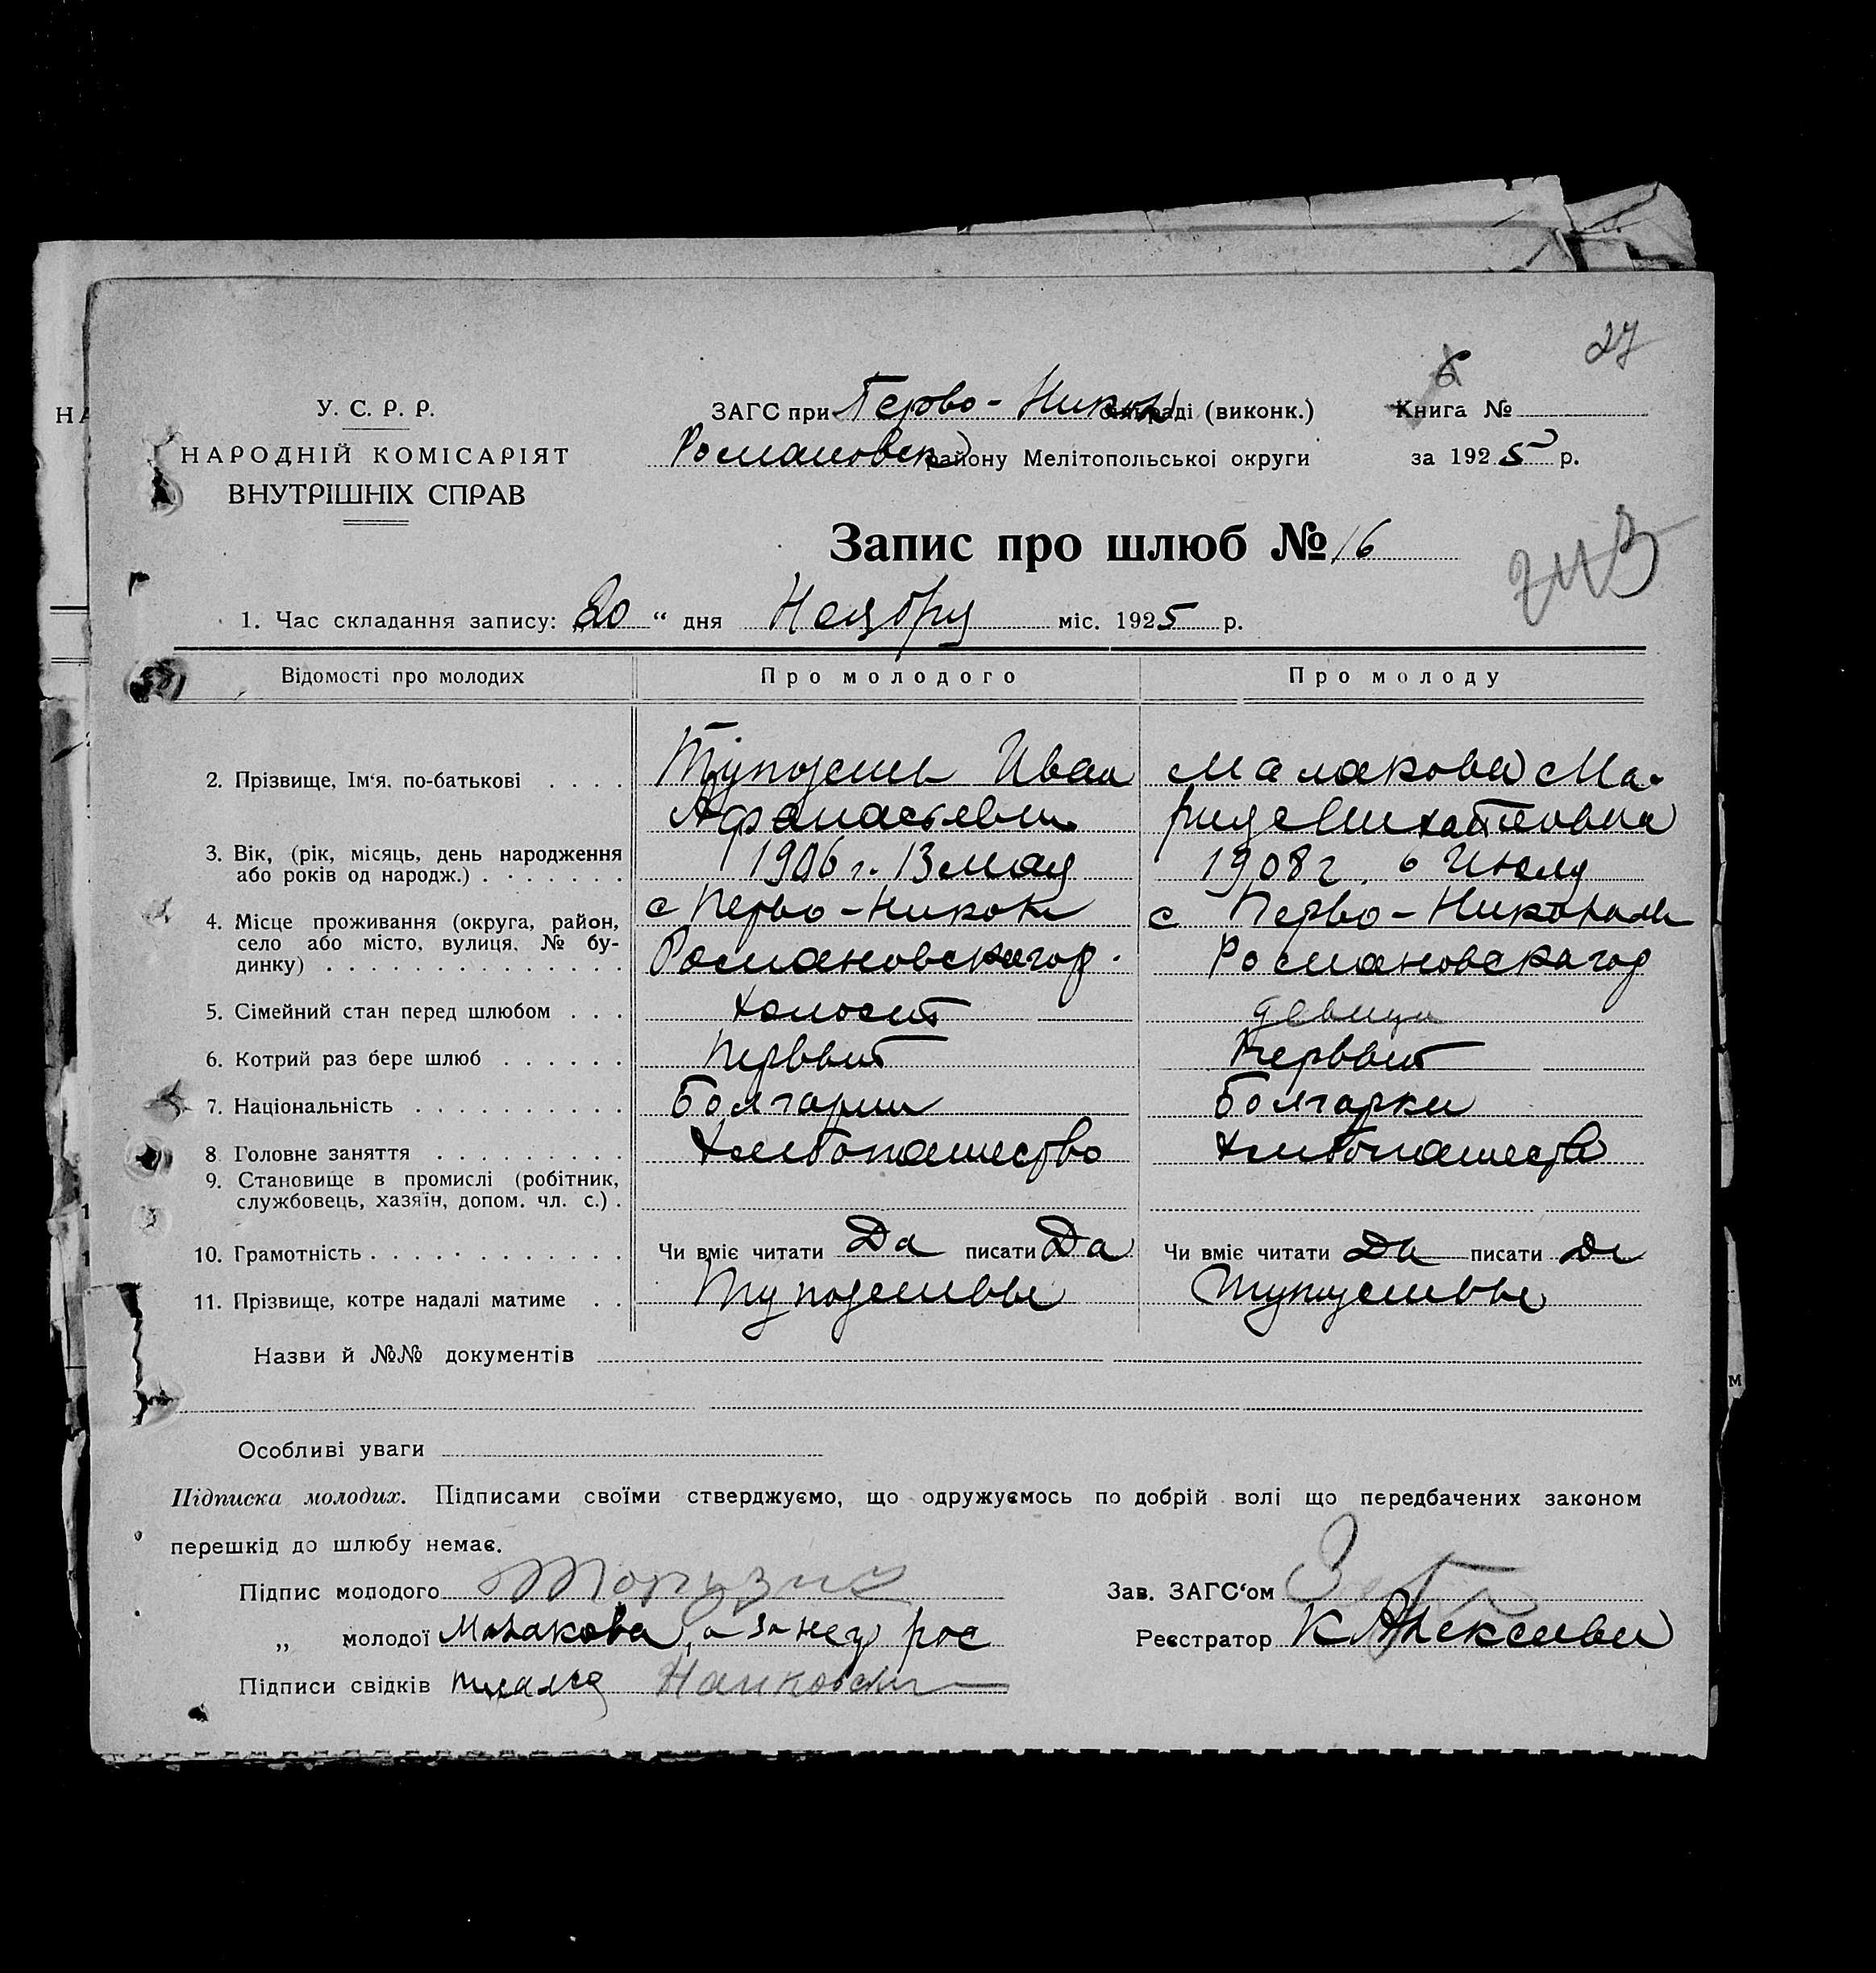 27
6
У. С. Р. Р.
НАРОДНІЙ КОМІСАРІЯТ
ВНУТРІШНІХ СПРАВ
ЗАГС при Перво-Никол сільраді (виконк.)
Романовск району Мелітопольської округи
Книга №
за 1925 р.
Запис про шлюб № 16
1. Час складання запису: „20“ дня Ноября міс. 1925 р.
Відомості про молодих
Про молодого
Про молоду
2. Прізвище, Ім‘я, по-батькові . . . .
Иван
Афанасьевич
Малакова Ма-
рия
3. Вік, (рік, місяць, день народження
або років од народж.) . . . . . . .
1906 г. 13 мая
1908 г. 6 Июля
4. Місце проживання (округа, район,
село або місто, вулиця, № бу-
динку) . . . . . . . . . . . . . .
с Перво-Никол
Романовскагор.
с Перво-Николаев
Романовскагор
5. Сімейний стан перед шлюбом . . .
холост
девица
6. Котрий раз бере шлюб . . . . . .
Первый
Первый
7. Національність . . . . . . . . . .
Болгарин
Болгарки
8 Головне заняття . . . . . . . . .
Хлебопашество
Хлебопашество
9. Становище в промислі (робітник,
службовець, хазяїн, допом. чл. с.) .
10. Грамотність . . . . . . . . . . . .
Чи вміє читати Да писати Да
Чи вміє читати Да писати Да
11. Прізвище, котре надалі матиме . .
Назви й №№ документів
Особливі уваги
Підписка молодих. Підписами своїми стверджуємо, що одружуємось по добрій волі що передбачених законом
перешкід до шлюбу немає.
Підпис молодого
„ молодої Малакова, а за нея рос
Підписи свідків
Зав. ЗАГС‘ом
Реєстратор К Алексеев